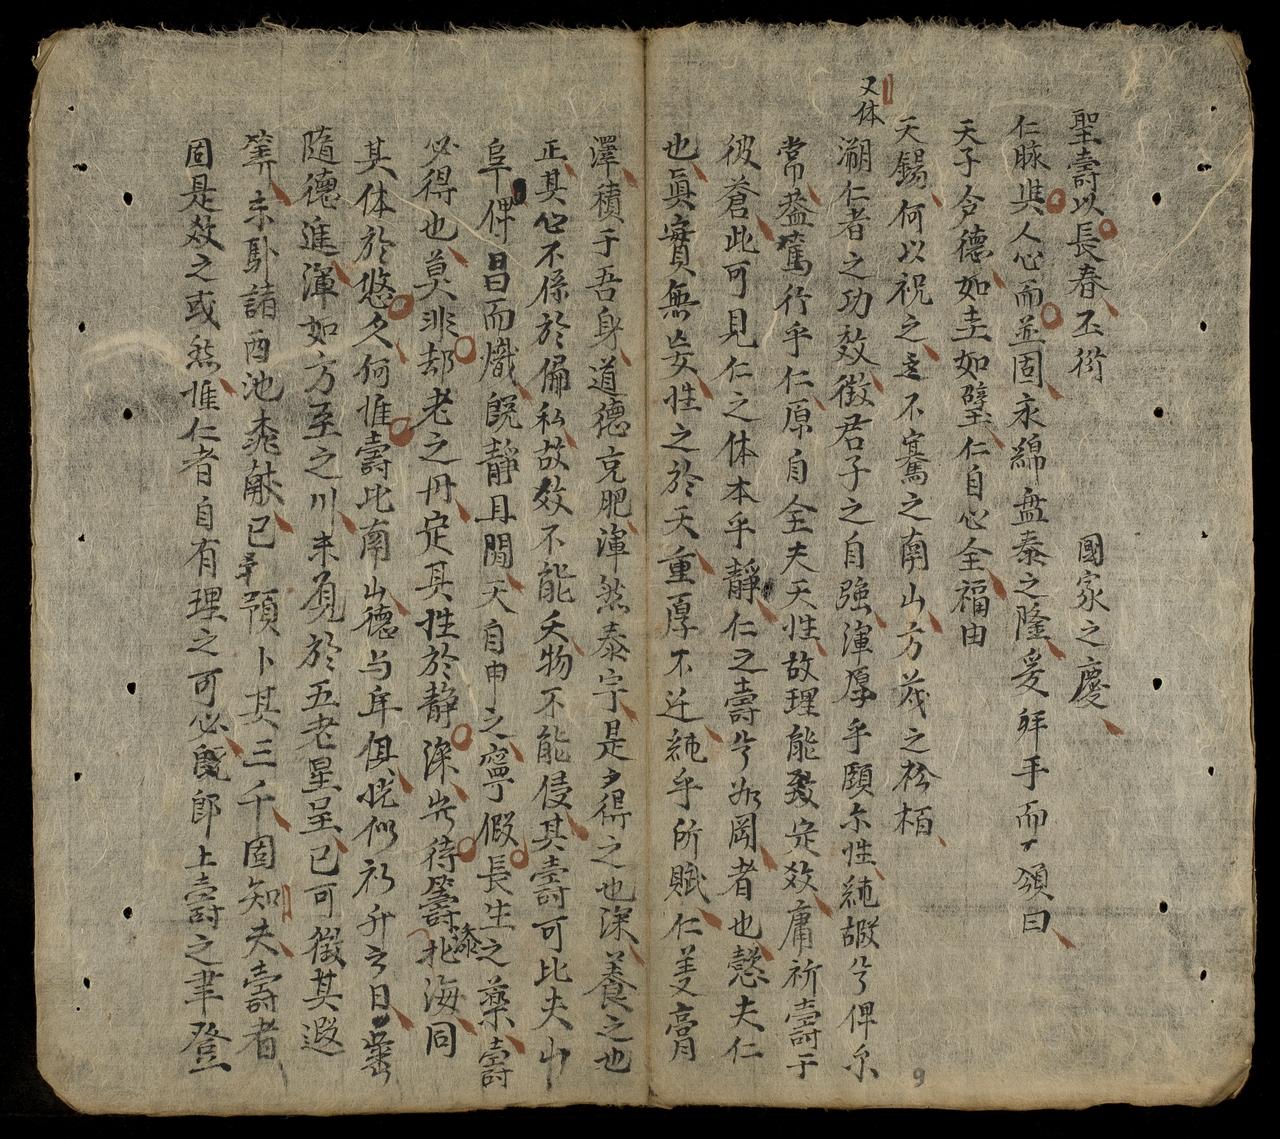 聖壽以長春丕衍　國家之慶
仁脉與人心而並固永綿盘泰之隆爰拜手而頌曰
天子令德如圭如璧仁自心全福由
天錫何以祝之不騫之南山方茂之松栢
又体
溯仁者之功效徵君子之自強渾厚乎頤尔性純嘏兮俾尔
常益篤行乎仁原自全夫天性故理能致定效庸祈壽于
彼蒼此可見仁之体本乎靜仁之壽兮如岡者也懿夫仁
也真實無妄性之於天重厚不迁純乎所賦仁美膏
澤積于吾身道德克肥渾然泰宇是多得之也深養之也
正其心不係於偏私故效不能夭物不能侵其壽可比夫山
阜俾昌而熾既靜且閒天自申之寧假長生之藥壽
必得也莫非却老之丹定其性於静深先待籌添北海同
其体於悠久何惟壽比南山德与年俱恍似初升之日
隨德進渾如方至之川未覓於五老星呈已可徵其遐
筭未卧諸酉池桃献已預卜其三千固知夫壽者
固是效之或然惟仁者自有理之可必既郎上壽之聿登
9